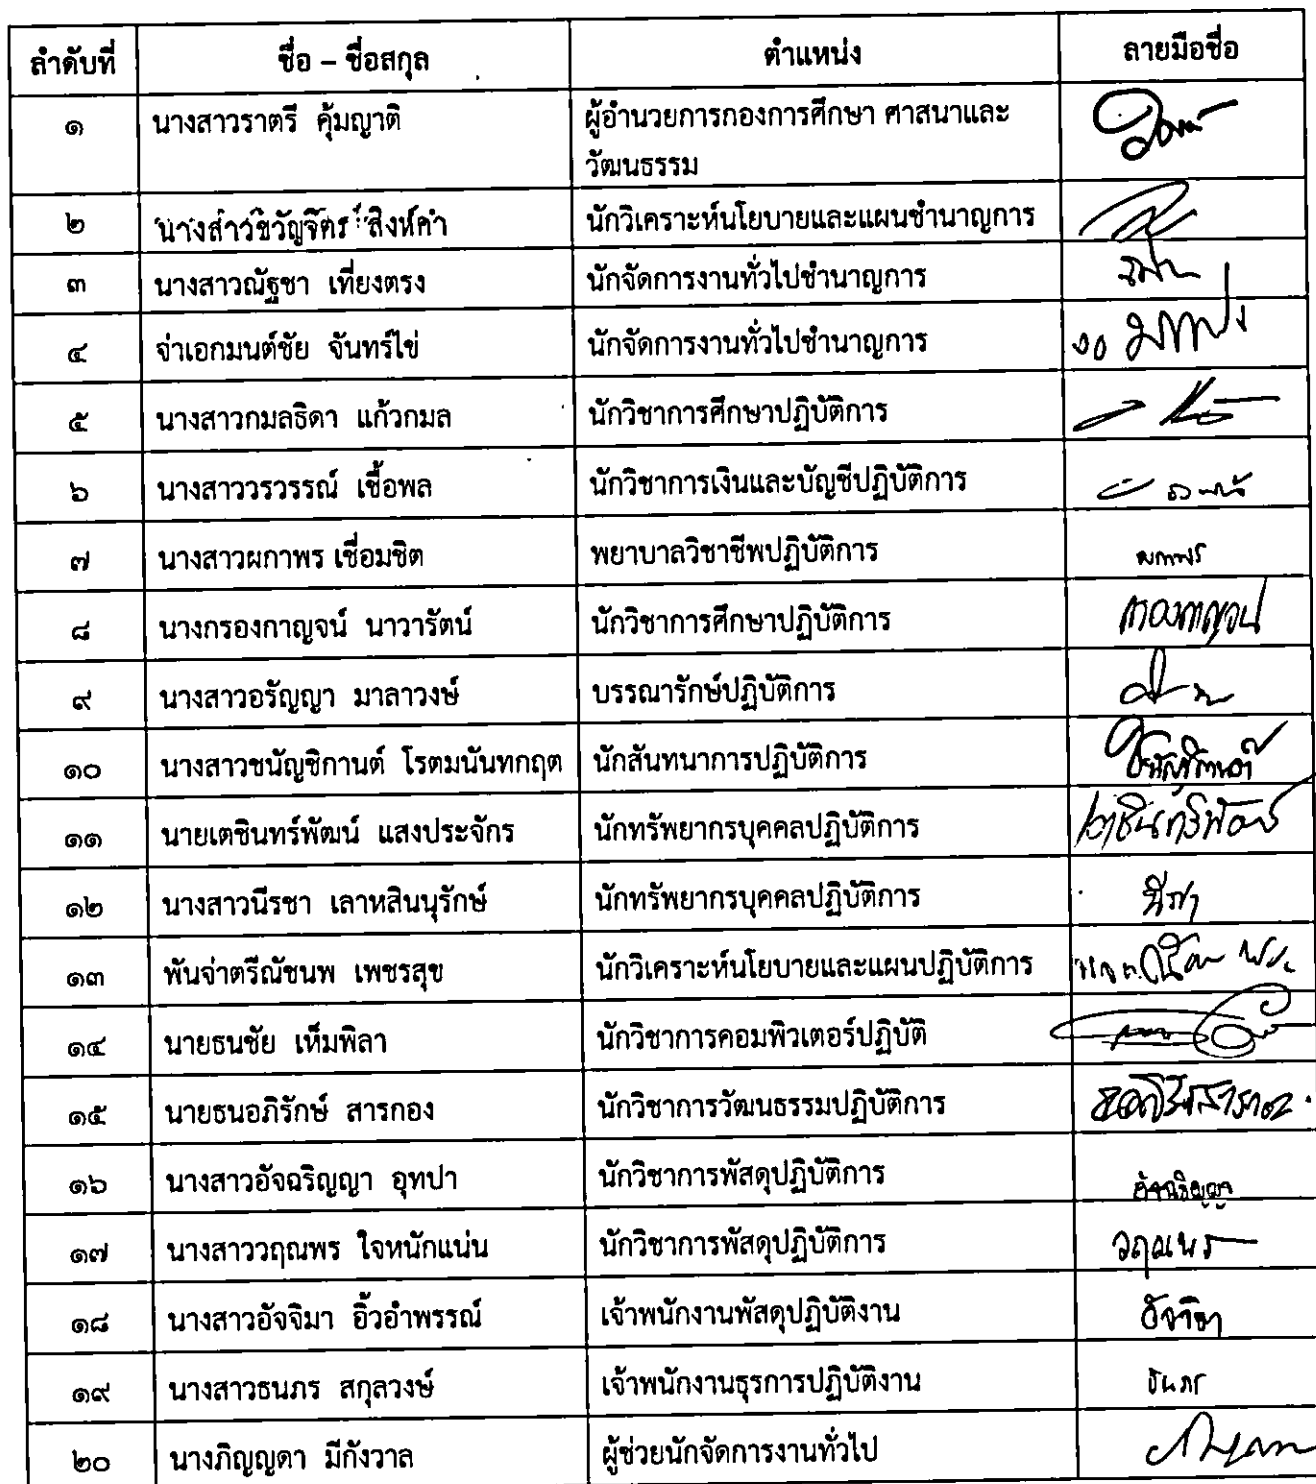 ลำดับที่ ชื่อ – ชื่อสกุล ตำแหน่ง ลายมือชื่อ
๑ นางสาวราตรี คุ้มญาติ ผู้อำนวยการกองการศึกษา ศาสนาและ
วัฒนธรรม
๒ นางสาวขวัญจิตร สิงห์คำ นักวิเคราะห์นโยบายและแผนชำนาญการ
๓ นางสาวณัฐชา เที่ยงตรง นักจัดการงานทั่วไปชำนาญการ
๔ จ่าเอกมนต์ชัย จันทร์ไข่ นักจัดการงานทั่วไปชำนาญการ
๕ นางสาวกมลธิดา แก้วกมล นักวิชาการศึกษาปฏิบัติการ
๖ นางสาววรวรรณ์ เชื้อพล นักวิชาการเงินและบัญชีปฏิบัติการ
๗ นางสาวผกาพร เชื่อมชิต พยาบาลวิชาชีพปฏิบัติการ ผกาพร
๘ นางกรองกาญจน์ นาวารัตน์ นักวิชาการศึกษาปฏิบัติการ กรองกาญจน์
๙ นางสาวอรัญญา มาลาวงษ์ บรรณารักษ์ปฏิบัติการ
๑๐ นางสาวชนัญชิกานต์ โรตมนันทกฤต นักสันทนาการปฏิบัติการ ชนัญชิกานต์
๑๑ นายเตชินทร์พัฒน์ แสงประจักร นักทรัพยากรบุคคลปฏิบัติการ เตชินทร์พัฒน์
๑๒ นางสาวนีรชา เลาหสินนุรักษ์ นักทรัพยากรบุคคลปฏิบัติการ นีรชา
๑๓ พันจ่าตรีณัชนพ เพชรสุข นักวิเคราะห์นโยบายและแผนปฏิบัติการ
๑๔ นายธนชัย เห็มพิลา นักวิชาการคอมพิวเตอร์ปฏิบัติ
๑๕ นายธนอภิรักษ์ สารกอง นักวิชาการวัฒนธรรมปฏิบัติการ
๑๖ นางสาวอัจฉริญญา อุทปา นักวิชาการพัสดุปฏิบัติการ อัจฉริญญา
๑๗ นางสาววฤณพร ใจหนักแน่น นักวิชาการพัสดุปฏิบัติการ วฤณพร
๑๘ นางสาวอัจจิมา อิ้วอำพรรณ์ เจ้าพนักงานพัสดุปฏิบัติงาน อัจจิมา
๑๙ นางสาวธนภร สกุลวงษ์ เจ้าพนักงานธุรการปฏิบัติงาน ธนภร
๒๐ นางภิญญดา มีกังวาล ผู้ช่วยนักจัดการงานทั่วไป